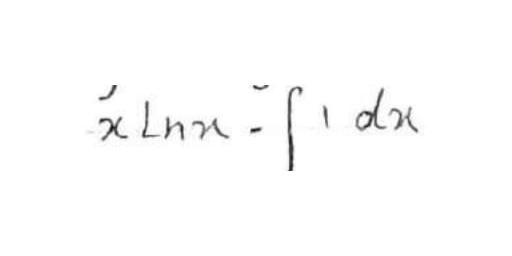 x Ln x - ∫ 1 dx